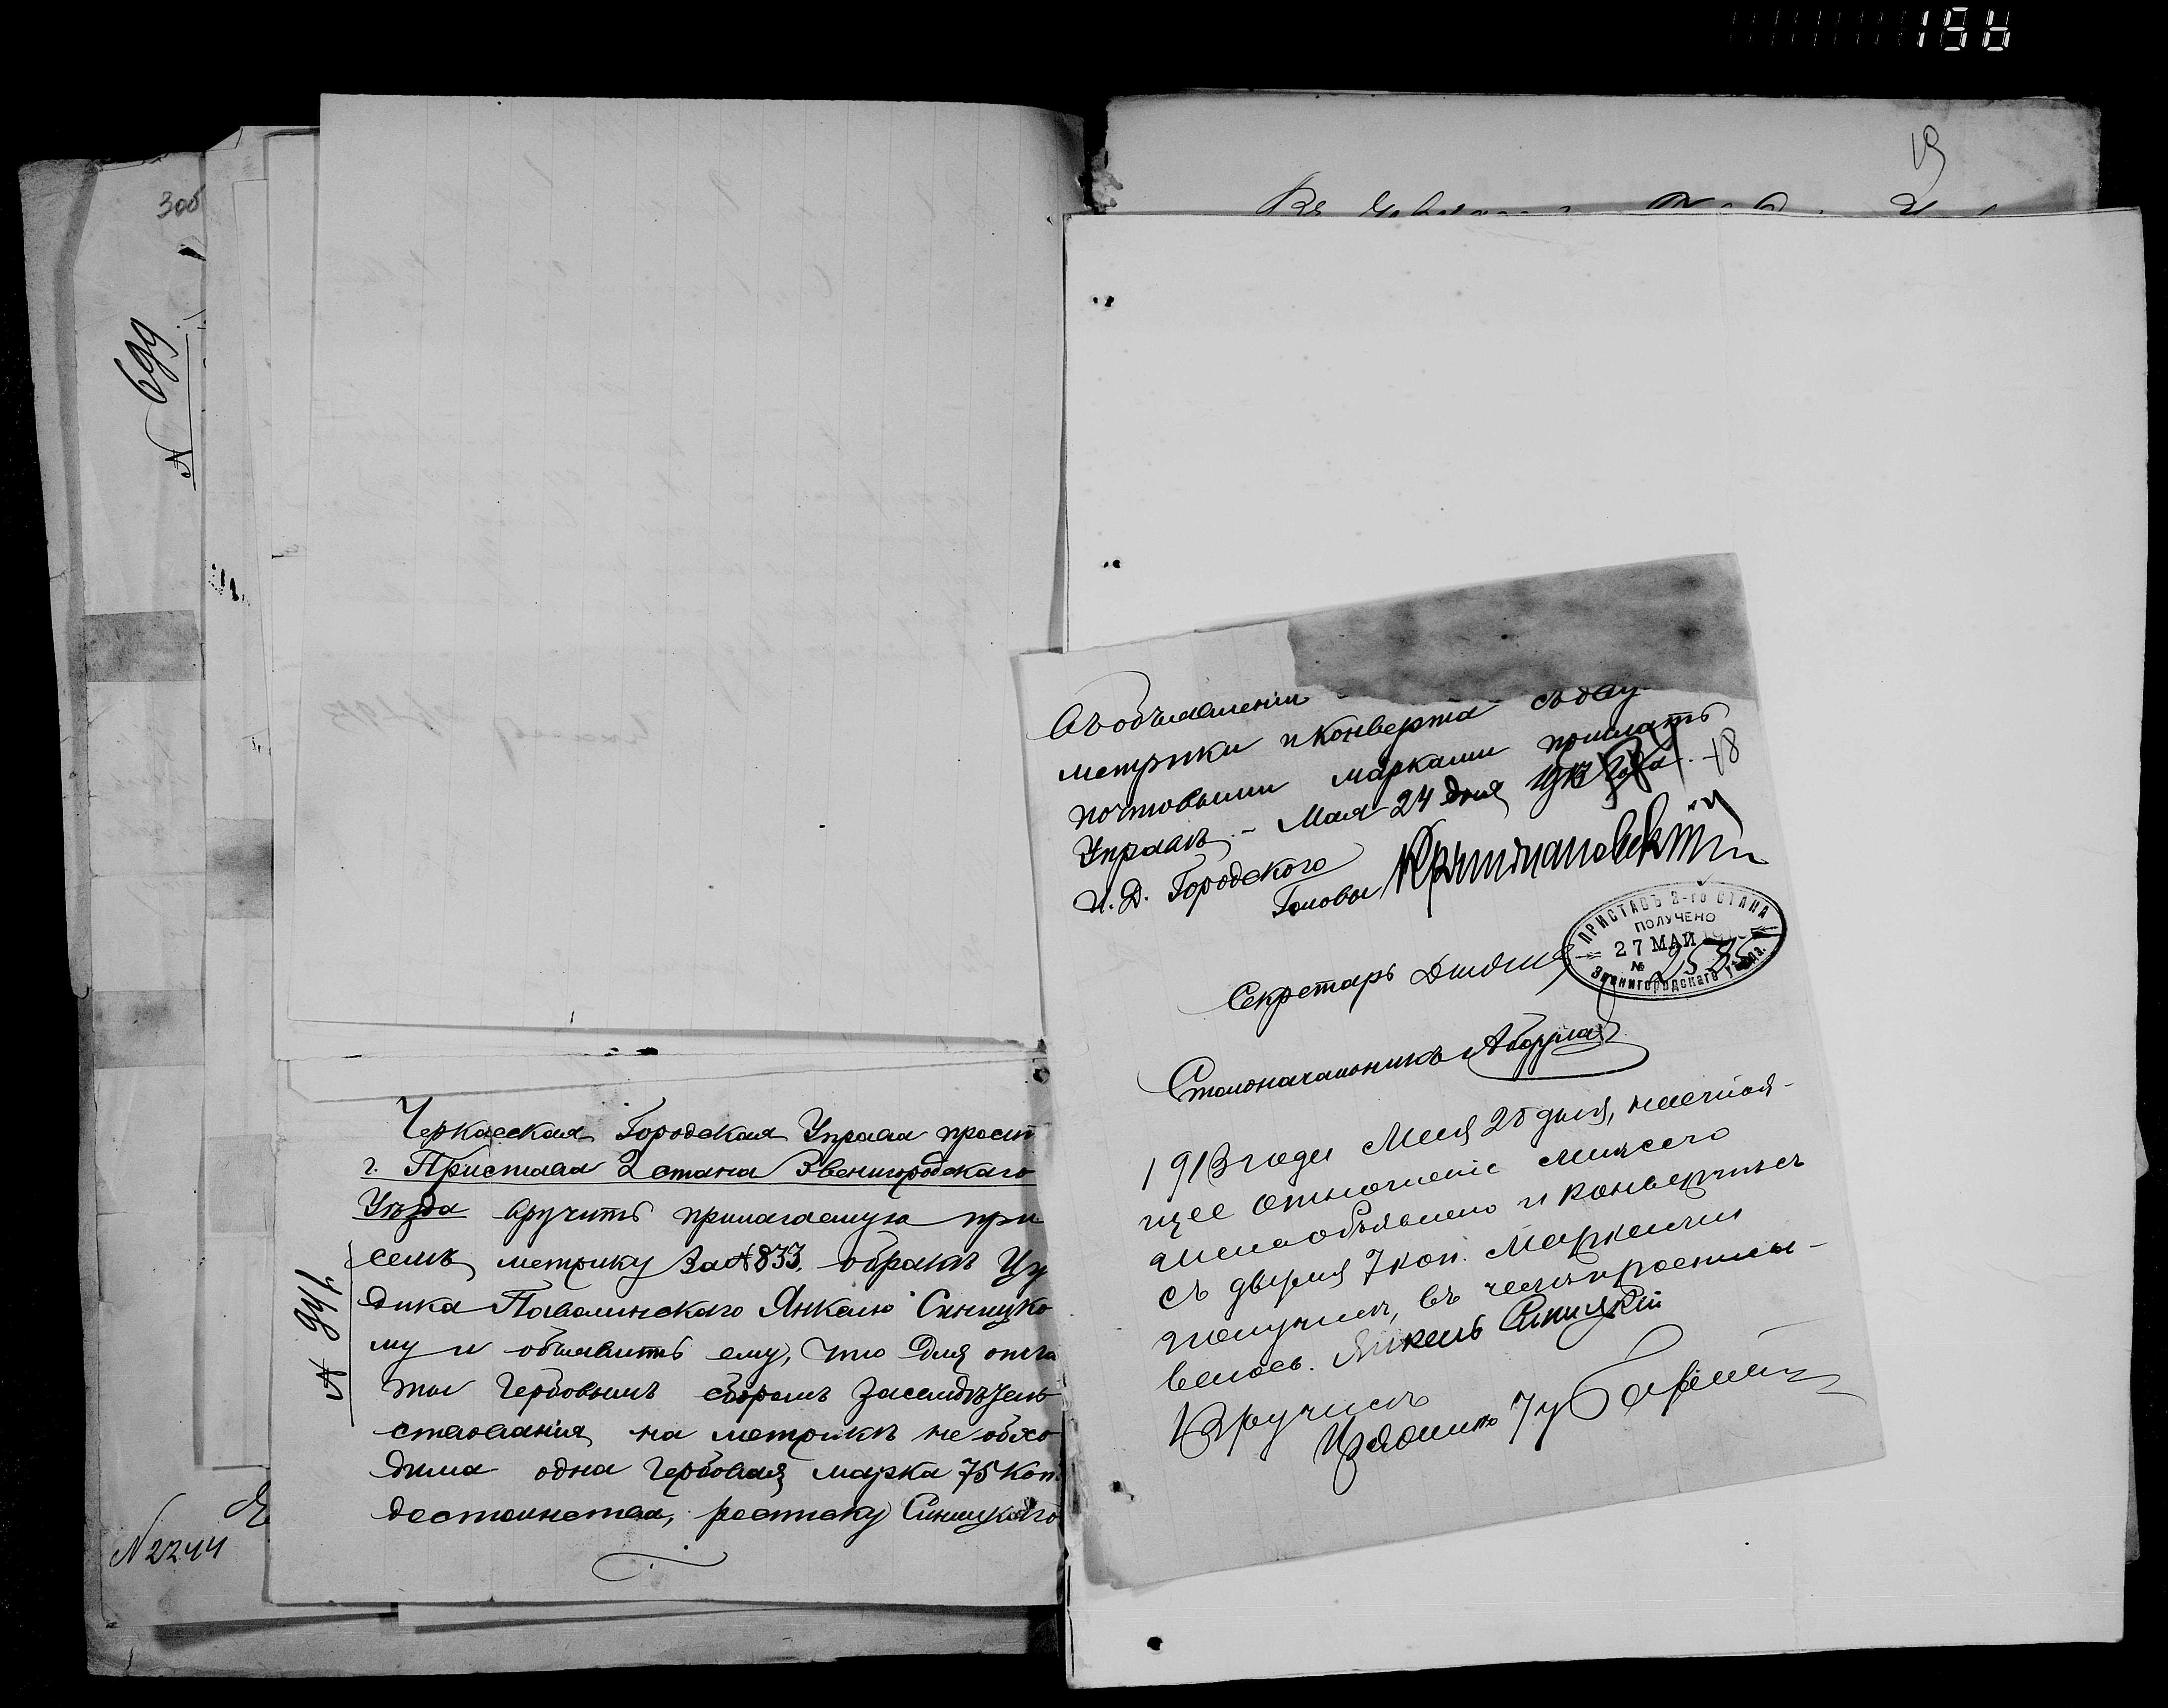 156
19
300
N 699
N 2244
Черкасская Городская Управа просит
г. Пристава 2 стана Звенигородскаго
Уѣзда вручить прилагаемую при
семъ метрику за №833. о бракѣ Цу
дика Паволинскаго Янкелю Синицко
му и объявить ему, что для опла
ты гербовымъ сборомъ засвидѣтель
ствования на метрикѣ необхо
дима одна гербовая марка 75 коп.
достоинства, росписку Синицкаго
N 941
въ объявленіи
метрики и конверта съ двумя
почтовыми марками прислать
Управѣ. – Мая 24 дня 1913 года.
18
И. Д. Городского
Головы
Секретарь
Столоначальникъ
ПРИСТАВЪ 2-го СТАНА
ПОЛУЧЕНО
27 МАЙ
№ 2535
Звенигородскаго уѣзда.
1913 года Мая 28 дня, настоя-
щее отношеніе мнѣ сего
числа объявлено и конвертъ съ
съ двумя 7 коп. марками
получилъ, въ чемъ и росписы-
ваюсь. Янкель Синицкій
Вручилъ
Урядникъ